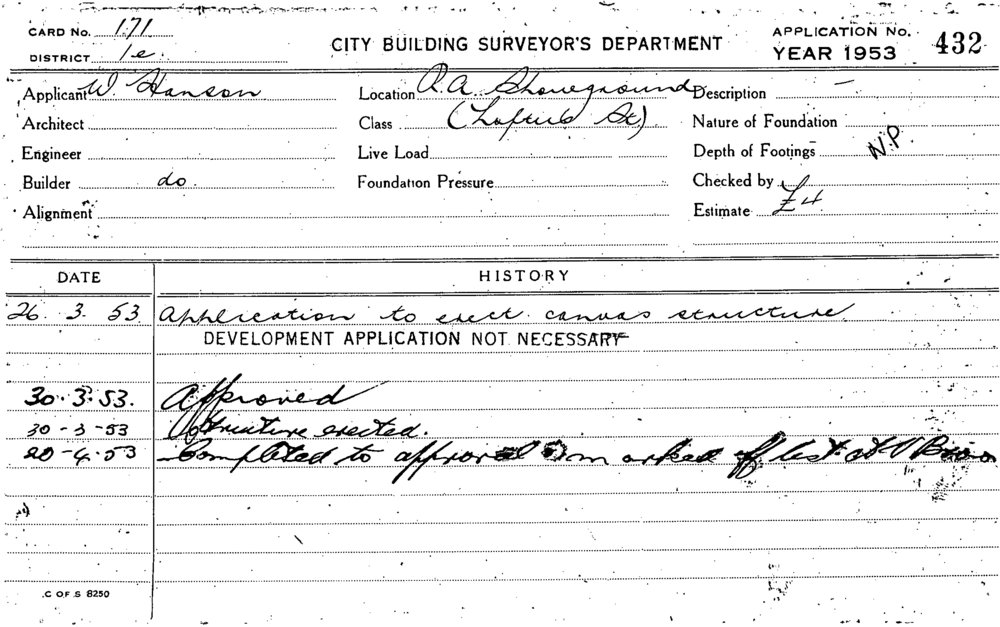 CARD No. 171
DISTRICT 1e.
CITY BUILDING SURVEYOR'S DEPARTMENT
APPLICATION No. 432
YEAR 1953
Applicant W. Hanson
Location R.A. Showground
Description —
Architect
Class (Loftus St)
Nature of Foundation
Engineer
Live Load
Depth of Footings
N.P.
Builder do.
Foundation Pressure
Checked by
Alignment
Estimate £4
DATE HISTORY
26. 3. 53. Application to erect canvas structure
DEVELOPMENT APPLICATION NOT NECESSARY
30.3.53. Approved
30-3-53 Structure erected.
20-4.53 Completed to approval marked off list
C OF S 8250